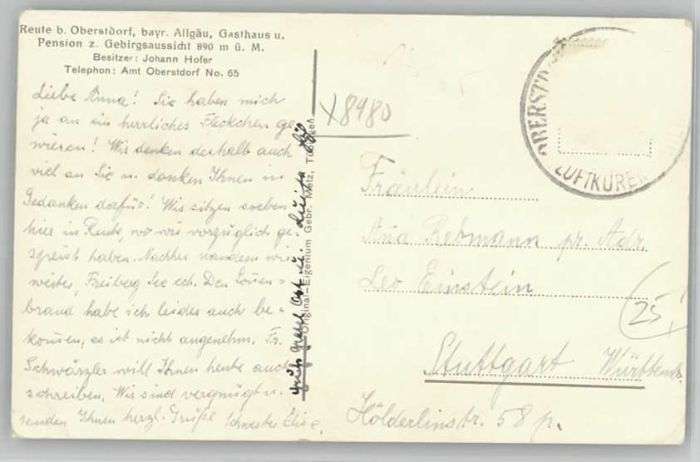 Reute b. Oberstdorf, bayr. Allgäu, Gasthaus u.
Pension z. Gebirgsaussicht 890 m ü. M.
Besitzer: Johann Hofer
Telephon: Amt Oberstdorf No. 65
Liebe Anna! Sie haben mich
ja an ein herrliches Fleckchen ge
wiesen! Wir denken deshalb auch
viel an Sie u. danken Ihnen in
Gedanken dafür! Wir sitzen soeben
hier in Reute, wo wir vorzüglich ge-
speist haben. Nachher wandern wir
weiter, Freiberg See ect. Den Sonnen-
brand habe ich leider auch be-
kommen, es ist nicht angenehm. Fr.
Schwärzler will Ihnen heute auch
schreiben. Wir sind vergnügt u.
senden Ihnen herzl. Grüße Schwester Elise.
Original-Eigentum Gebr. Metz, Tübingen
X8980
OBERSTD
LUFTKUROR
Fräulein
Rebmann pr. Adr.
Leo Einstein
25,
Stuttgart Württbg.
Hölderlinstr. 58 p.